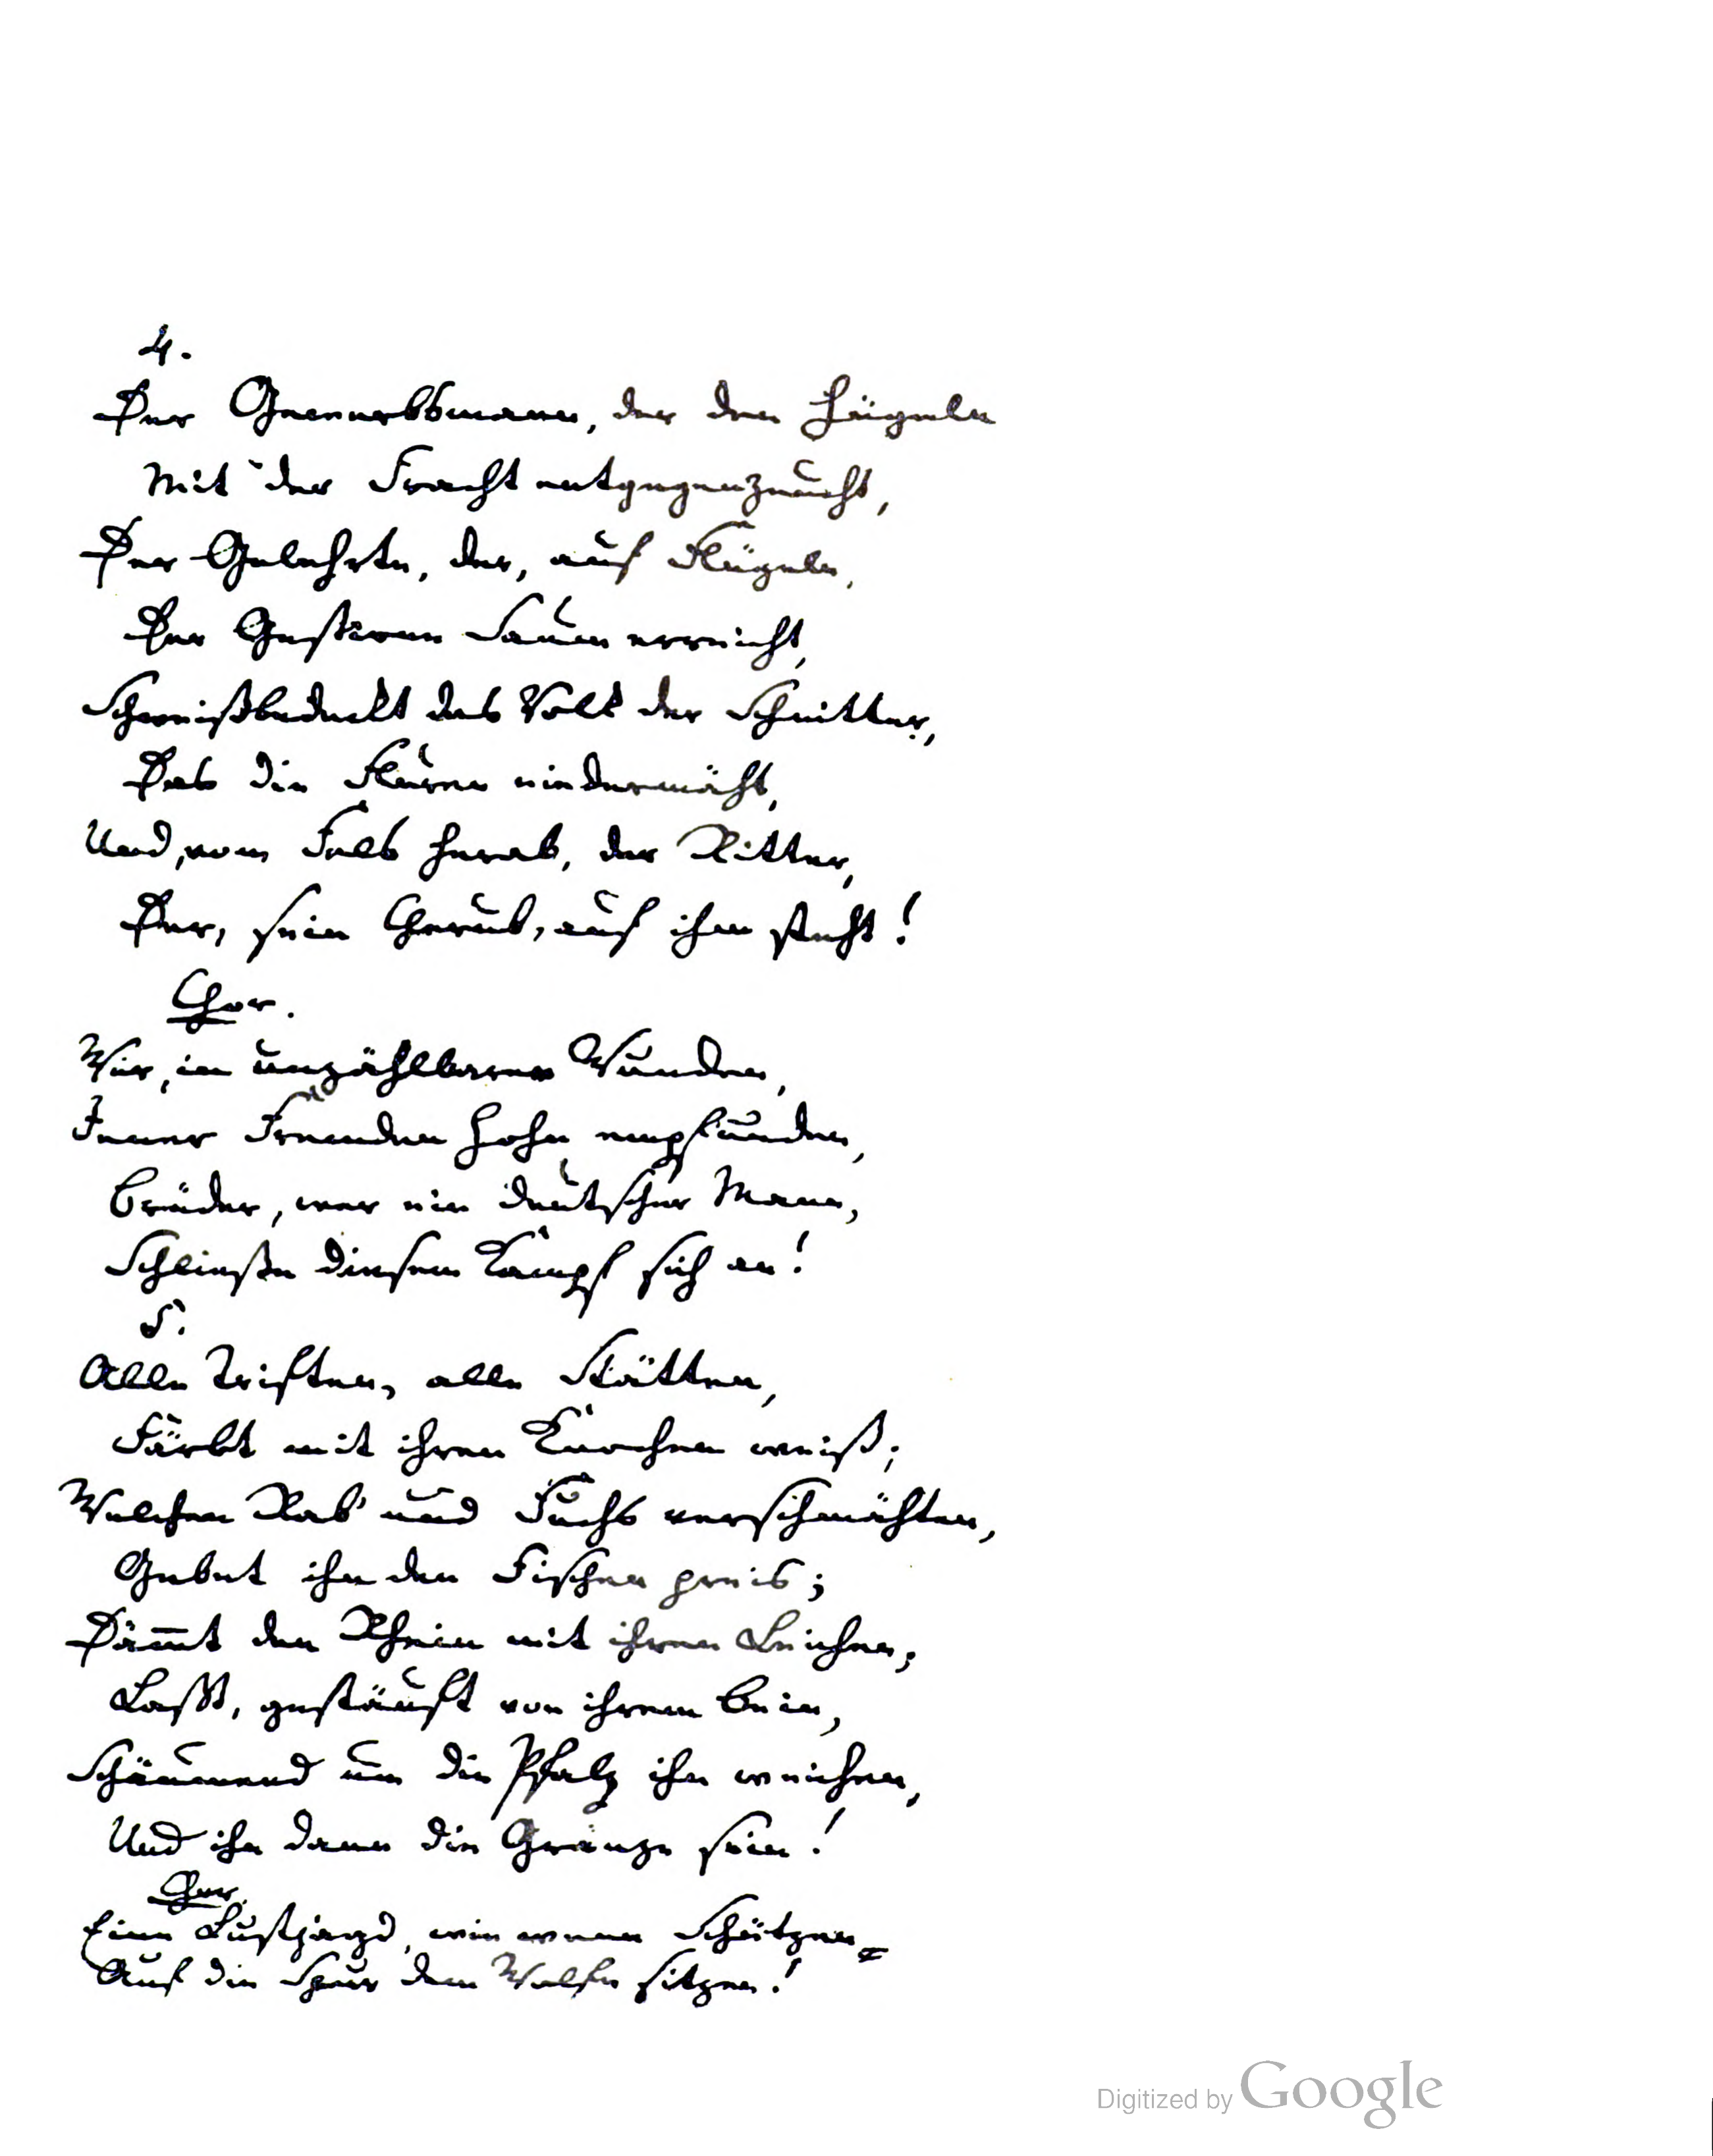 4.
Der Gewerbsmann, der den Hügeln
Mit der Fracht entgegenzeucht,
Der Gelehrte, der, auf Flügeln,
Der Gestirne Saum erreicht,
Schweißbedeckt das Volk der Schnitter,
Das die Fluren niedermäht,
Und, vom Fels herab, der Ritter,
Der, sein Cherub, auf ihm steht!
Chor.
Wer, in unzählbaren Wunden,
Jener Fremden Hohn empfunden,
Brüder, wer ein deutscher Mann,
Schließe diesem Kampf sich an!
5.
Alle Triften, alle Stätten,
Färbt mit ihren Knochen weiß;
Welchen Rab' und Fuchs verschmähten,
Gebet ihn den Fischen preis;
Däm̄t den Rhein mit ihren Leichen;
Laßt, gestäuft von ihrem Bein,
Schäumend um die Pfalz ihn weichen,
Und ihn dann die Gränze sein!
Chor.
Eine Lustjagd, wie wenn Schützen
Auf die Spur dem Wolfe sitzen!
Digitized by Google